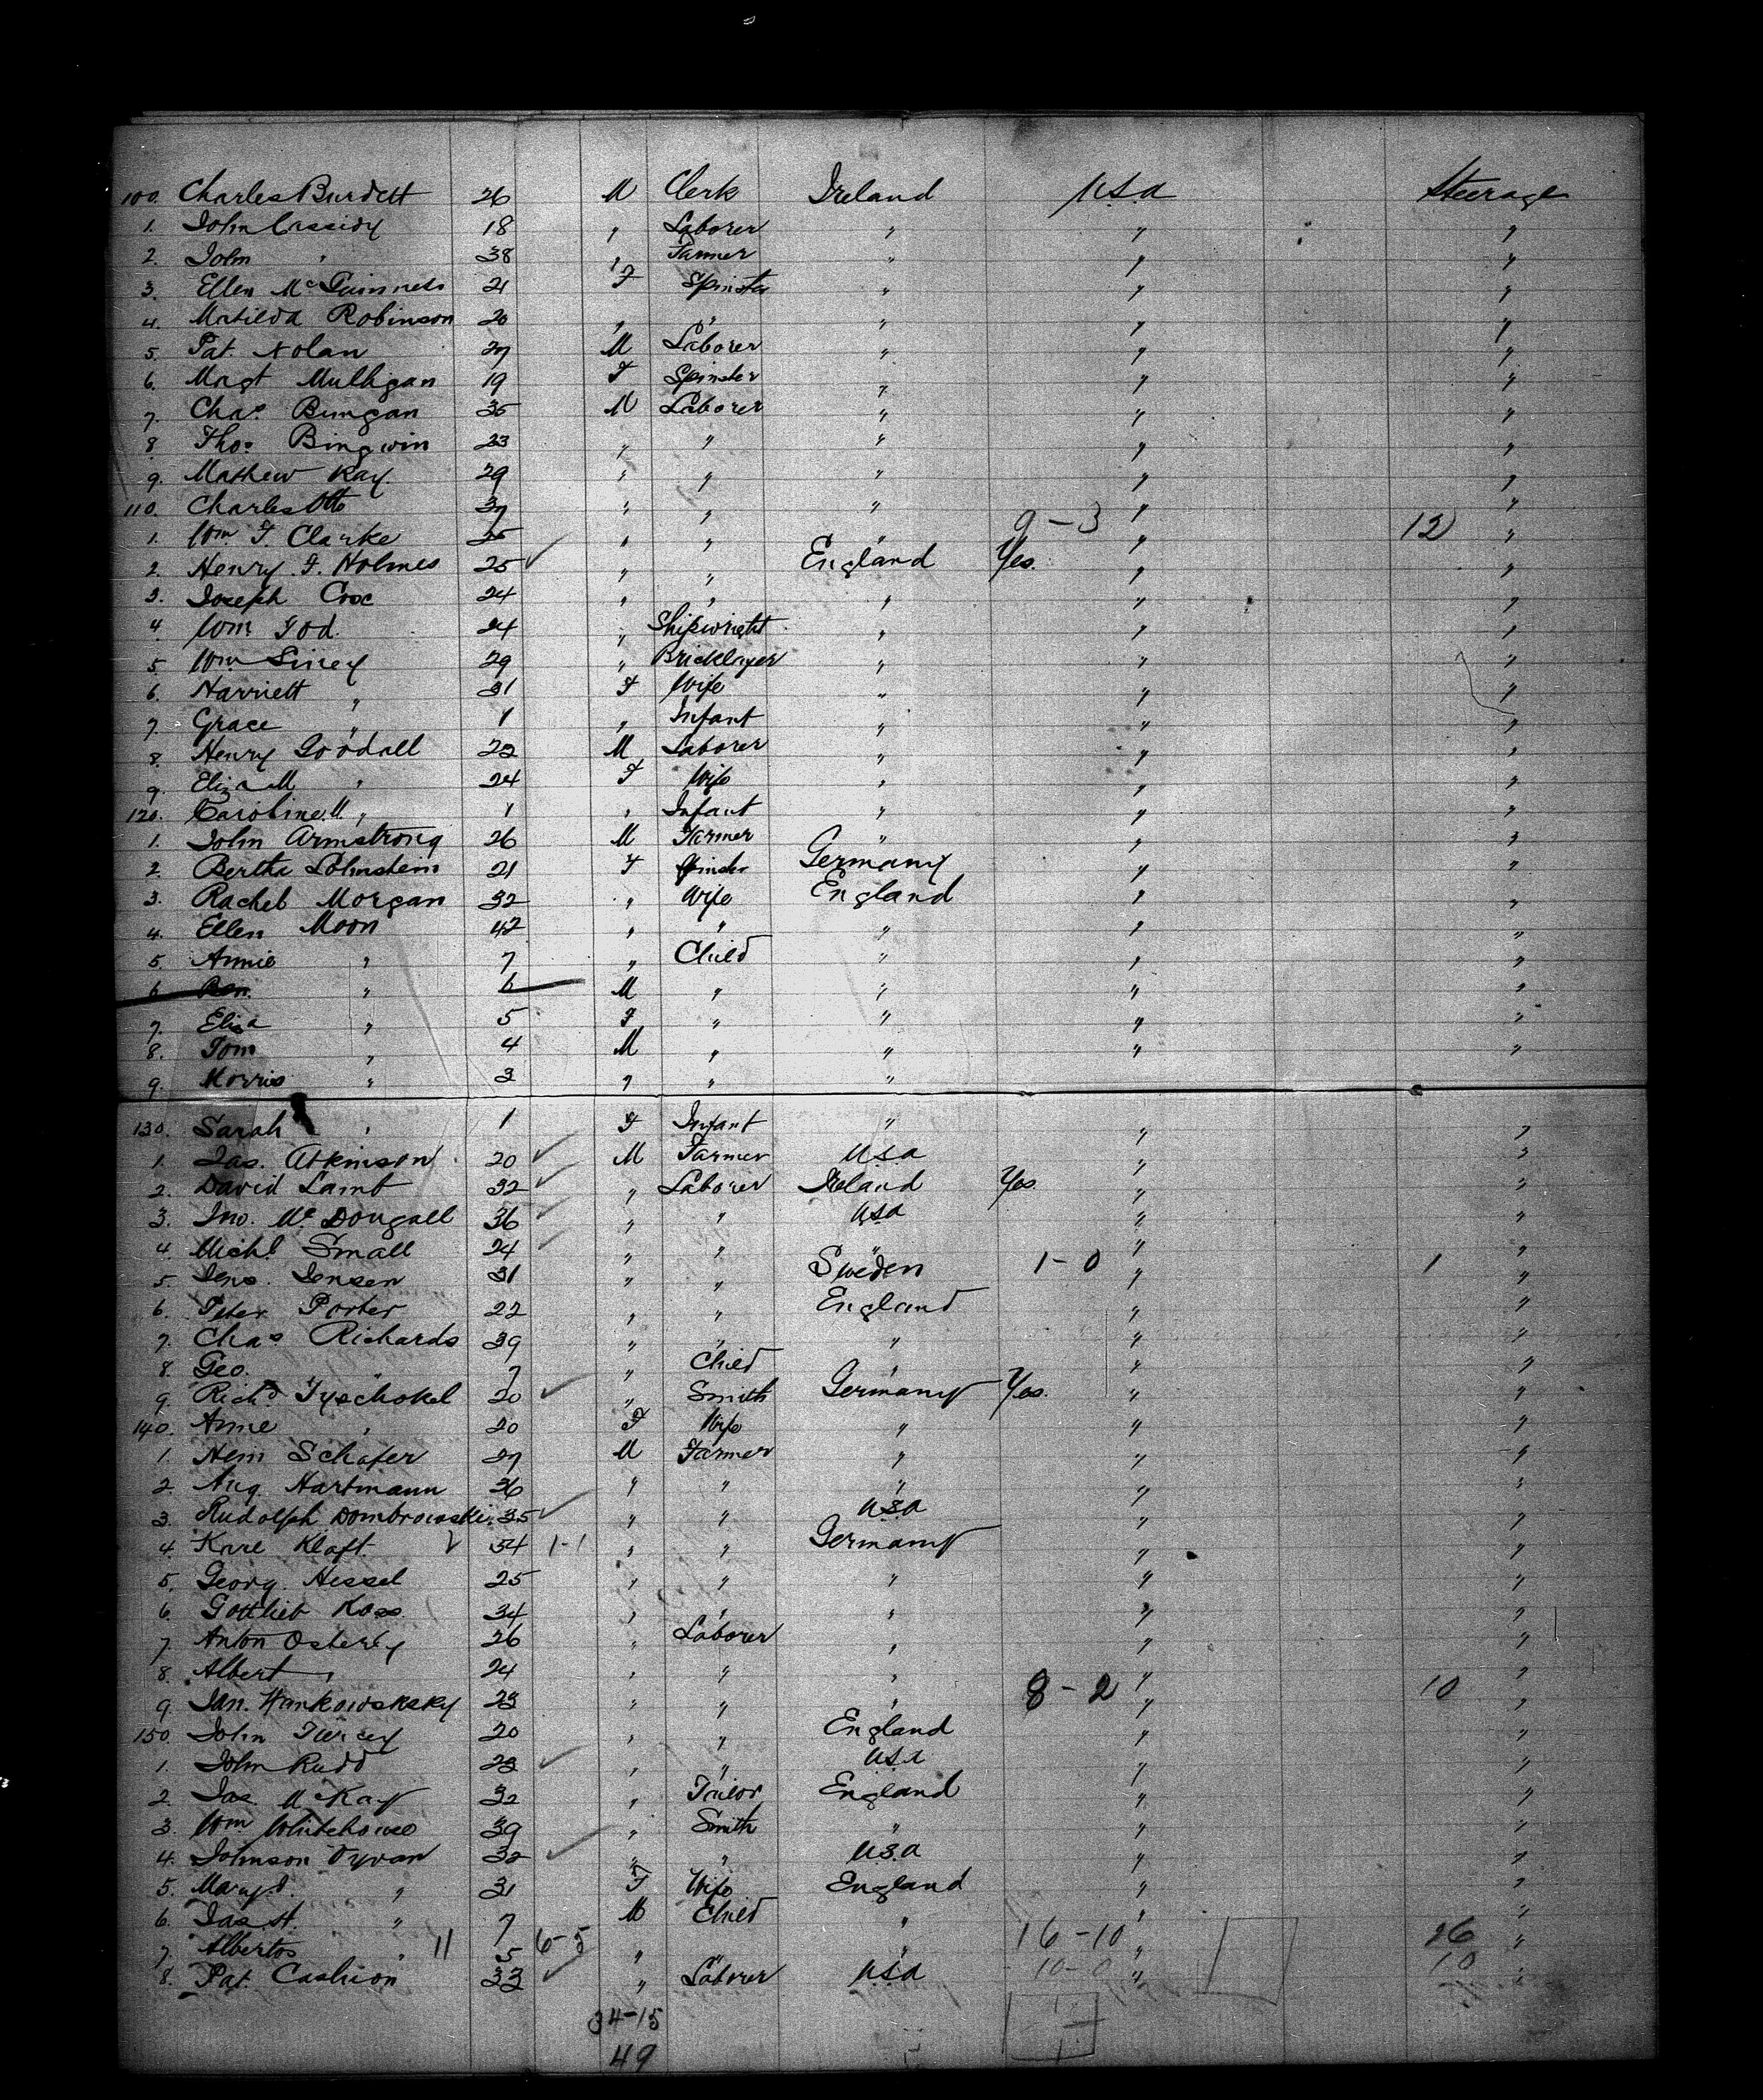 100. Charles Burdett 26 M Clerk Ireland U.S.A Steerage
1. John Cassidy 18 " Laborer " " "
2. John " 38 " Farmer " " "
3. Ellen McGuinness 21 F Spinster " " "
4. Matilda Robinson 20 " " " " "
5. Pat. Nolan 27 M Laborer " " "
6. Magt Mulligan 19 F Spinster " " "
7. Chas. 35 M Laborer " " "
8. Thos. Bingwin 23 " " " " "
9. Mathew Kay 29 " " " " "
110. Charles Otto 37 " " " " "
9-3 12
1. Wm. F. Clarke 25 " " " " "
2. Henry F. Holmes 25 ✓ " " England Yes. " "
3. Joseph 24 " " " " "
4. Wm 24 " Shipwright " " "
5. Wm 29 " Bricklayer " " "
6. Harriett " 31 F Wife " " "
7. Grace " 1 " Infant " " "
8. Henry Goodall 22 M Laborer " " "
9. Eliza M " 24 F Wife " " "
120. Caroline M. " 1 " Infant " " "
1. John Armstrong 26 M Farmer " " "
2. Bertha 21 F Spinster Germany " "
3. Rachel Morgan 32 " Wife England " "
4. Ellen Moon 42 " " " " "
5. Annie " 7 " Child " " "
6. Ben. " 6 M " " " "
7. Eliza " 5 F " " " "
8. Tom " 4 M " " " "
9. Morris " 3 " " "
130. Sarah " 1 F Infant " " "
1. Jas. Atkinson 20 ✓ M Farmer U.S.A " "
2. David Lamb 32 ✓ " Laborer Ireland Yes. " "
3. Jno. McDougall 36 ✓ " " U.S.A " "
4. Michl. Small 24 ✓ " " " " "
1-0 1
5. Jens. Jensen 31 " " Sweden " "
6. Peter Porter 22 " " England " "
7. Chas. Richards 39 " " " " "
8. Geo. " 7 " Child " " "
9. Richd. Tyschokel 20 ✓ " Smith Germany Yes. " "
140. Anne " 20 F Wife " " "
1. Hein Schafer 27 M Farmer " " "
2. Aug. Hartmann 36 " " " " "
3. Rudolph Dombrowski. 35 ✓ " " U.S.A " "
4. Karl Klaft ✓ 54 1-1 " " Germany " "
5. Georg. Hessel 25 " " " " "
6. Gottlieb Koss. 34 " " " " "
7. Anton 26 " Laborer " " "
8. Albert " 24 " " " " "
8-2 10
9. Jan. 23 " " " " "
150. John 20 " " England " "
1. John Rudd 22 ✓ " " U.S.A " "
2. Jas. McKay 32 " Tailor England " "
3. Wm Whitehouse 39 " Smith " " "
4. Johnson 32 ✓ " " U.S.A " "
5. Mary " 31 F Wife England " "
6. Jas. H. " 7 M Child " " "
16-10 26
7. Albertos " 11 5 6-5 " " " "
10-0 10
8. Pat. Cashion 33 ✓ " Laborer U.S.A " "
34-15
49